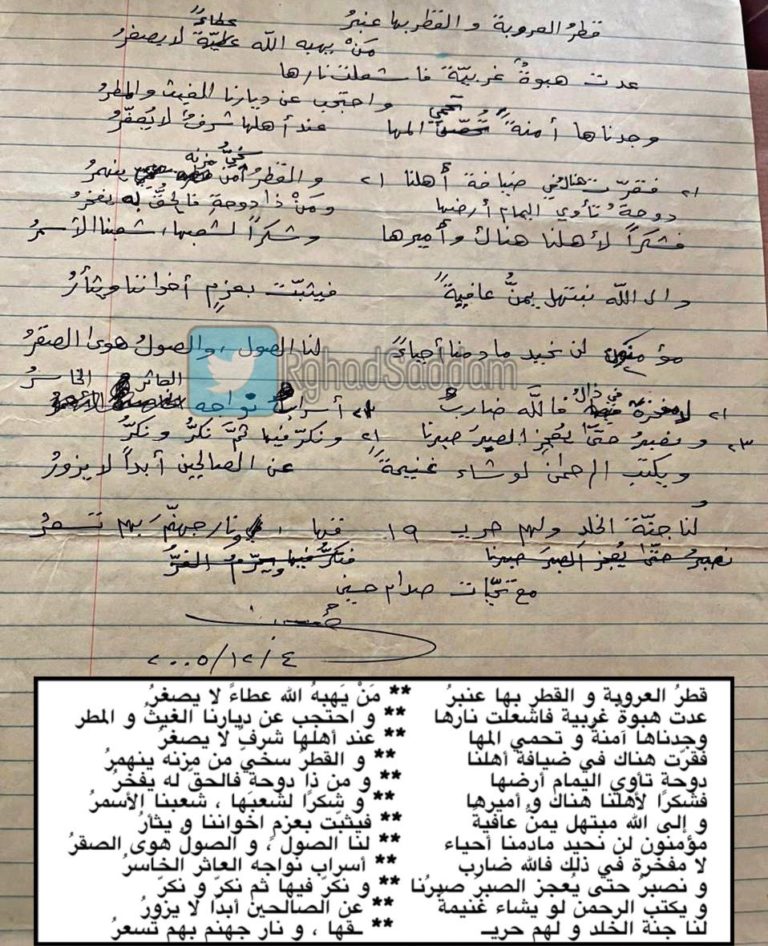 قطرُ العروبة و القطر بها عنبرُ
عطاءً
مَنْ يهبه الله لا يصغرُ
عدت هبوةٌ غربيّة فاشعلت نارها
واحتجب عن ديارنا الغيث والمطرُ
وجدناها أمنةً تحمي المها عند أهلها شرفٌ لا يُصغّرُ
سخيٌّ مزنه
فقرّت هناك في ضيافة أهلنا والقطرُ من ينهمرُ
دوحة تأوي اليمام أرضها ومَنْ ذا دوحة فالحقُّ له يفخرُ
فشكراً لأهلنا هناك وأميرها وشكراً لشعبها، شعبنا الأسمرُ
والى الله نبتهل يمنُّ عافيةً فيثبّت بعزمٍ أخواننا ويثأرُ
مؤمنون لن نحيد ما دمنا أحياءً لنا الصول، والصولُ هوى الصقرُ
RghadSaddam
العاثر الخاسرُ
لا مفخرة في ذاك فالله ضاربٌ أسرابٌ نواجه
ونصبرُ حتى يُعجز الصبرَ صبرنا ونكرّ فيها ثمَّ نكرُّ ونكرُّ
ويكتب الرحمن لو شاء غنيمةً عن الصالحين أبداً لا يزورُ
لنا جنّة الخلد ولهم حريـ ١٩ ـقها، ونار جهنّمَ بهم تسعرُ
نصبرُ حتّى يُعجز الصبرَ صبرنا فنكرُّ فيها
مع تحيّات صدام حسين
٢٠٠٥/١٢/٤
قطرُ العروبة و القطر بها عنبرُ ** مَنْ يَهبهُ الله عطاءً لا يصغرُ
عدت هبوةٌ غربية فاشعلت نارها ** و احتجب عن ديارنا الغيثُ و المطر
وجدناها أمنةً و تحمي المها ** عند أهلها شرفٌ لا يصغرُ
فقرّت هناك في ضيافة أهلنا ** و القطرُ سخي من مزنه ينهمرُ
دوحة تأوي اليمام أرضها ** و من ذا دوحة فالحقّ له يفخرُ
فشكرًا لأهلنا هناك و أميرها ** و شكرًا لشعبها ، شعبنا الأسمرُ
و إلى الله مبتهل يمنُّ عافيةً ** فيثبّت بعزمٍ اخواننا و يثأرُ
مؤمنون لن نحيد مادمنا أحياء ** لنا الصول ، و الصولُ هوى الصقرُ
لا مفخرة في ذلك فالله ضارب ** أسراب نواجه العاثر الخاسرُ
و نصبرُ حتى يُعجز الصبرَ صبرُنا ** و نكرّ فيها ثم نكرّ و نكرّ
و يكتب الرحمن لو يشاء غنيمةً ** عن الصالحين أبدًا لا يزورُ
لنا جنة الخلد و لهم حريـ ** ـقها ، و نار جهنم بهم تسعرُ